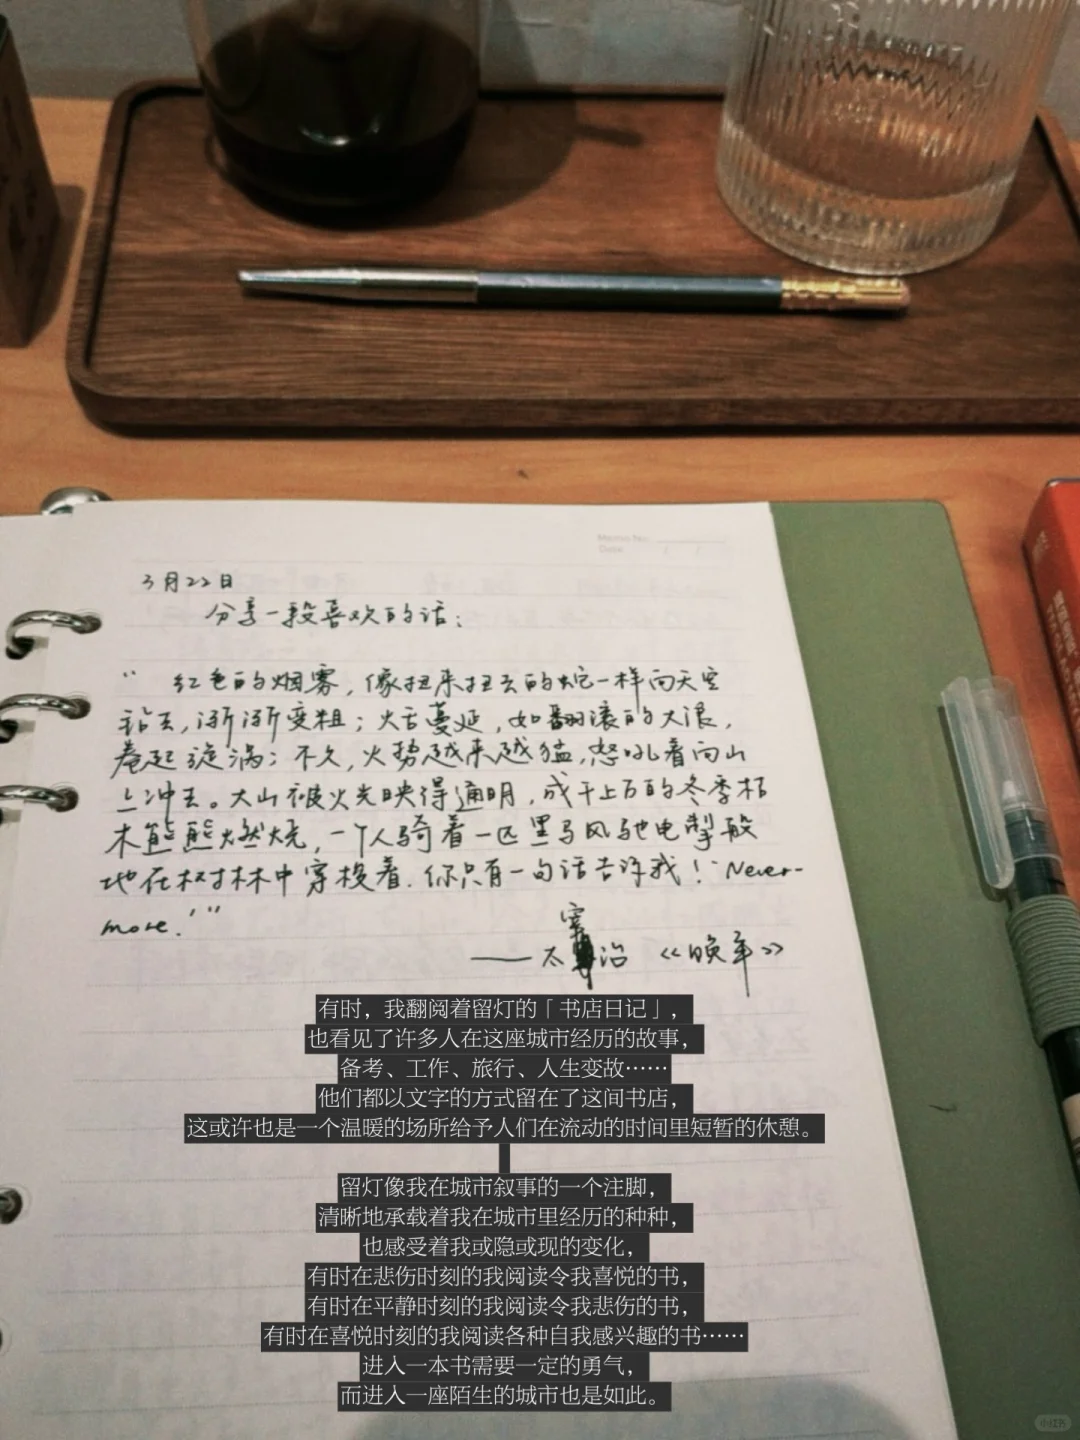 Memo No.
Date / /
3月22日
分享一段喜欢的话：
“红色的烟雾，像扭来扭去的蛇一样向天空
钻去，渐渐变粗；火舌蔓延，如翻滚的大浪，
卷起漩涡；不久，火势越来越猛，怒吼着向山
上冲去。大山被火光映得通明，成千上万的冬季枯
木熊熊燃烧，一个人骑着一匹黑马风驰电掣般
地在树林中穿梭着.你只有一句话告诉我！‘Never-
more.’”
——太宰治 《晚年》
有时，我翻阅着留灯的「书店日记」，
也看见了许多人在这座城市经历的故事，
备考、工作、旅行、人生变故……
他们都以文字的方式留在了这间书店，
这或许也是一个温暖的场所给予人们在流动的时间里短暂的休憩。
留灯像我在城市叙事的一个注脚，
清晰地承载着我在城市里经历的种种，
也感受着我或隐或现的变化，
有时在悲伤时刻的我阅读令我喜悦的书，
有时在平静时刻的我阅读令我悲伤的书，
有时在喜悦时刻的我阅读各种自我感兴趣的书……
进入一本书需要一定的勇气，
而进入一座陌生的城市也是如此。
小红书